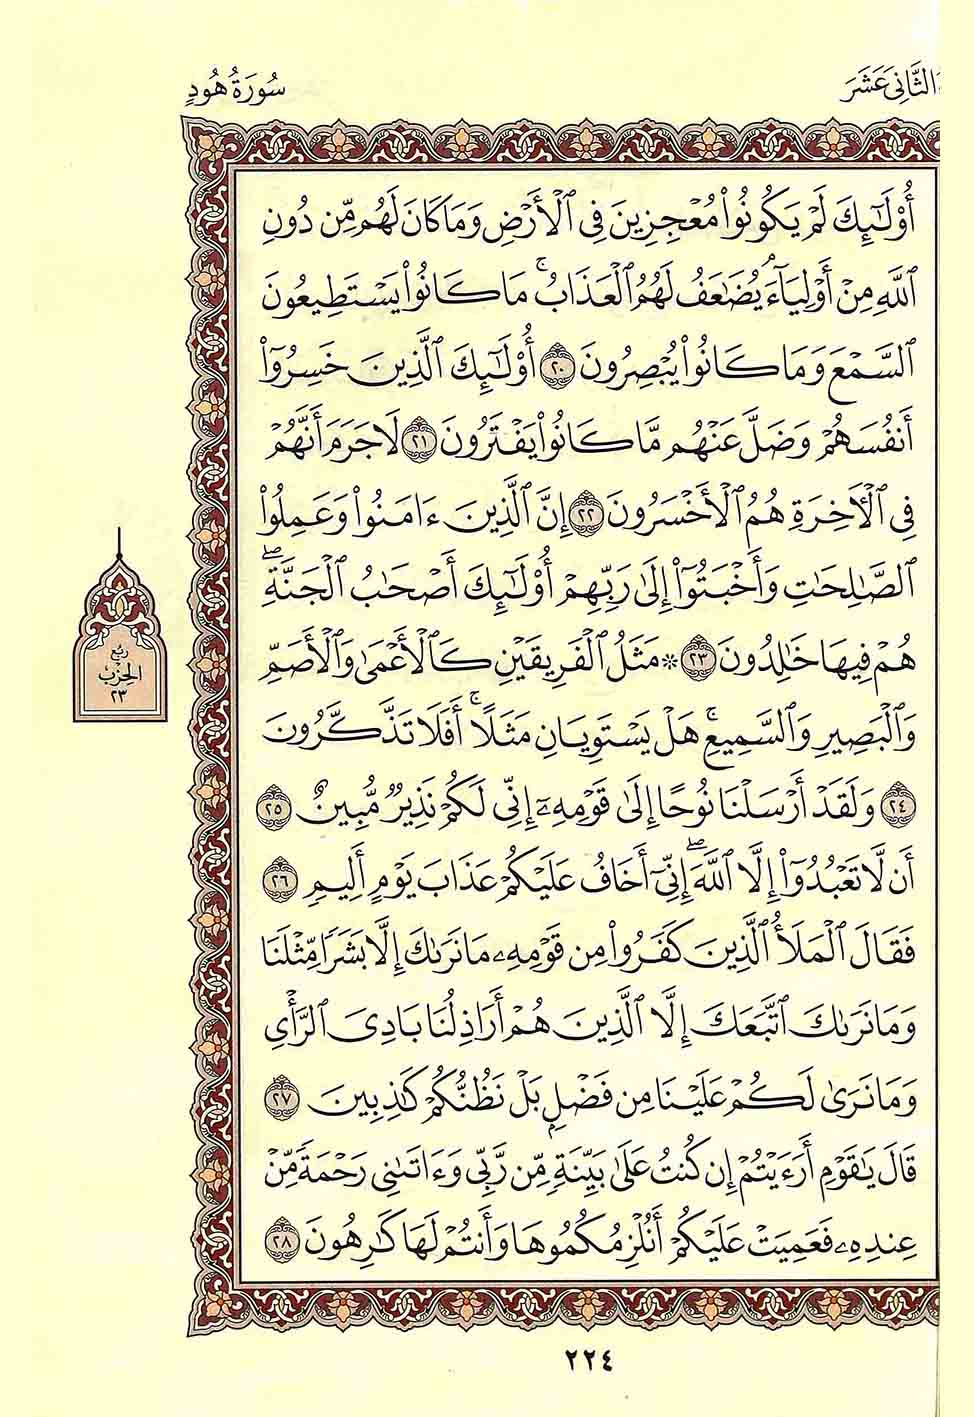 الثَّانِىَ عَشَرَ
سُورَةُ هُودٍ
أُوْلَٰٓئِكَ لَمْ يَكُونُوا۟ مُعْجِزِينَ فِى ٱلْأَرْضِ وَمَا كَانَ لَهُم مِّن دُونِ
ٱللَّهِ مِنْ أَوْلِيَآءَ ۘ يُضَٰعَفُ لَهُمُ ٱلْعَذَابُ ۚ مَا كَانُوا۟ يَسْتَطِيعُونَ
ٱلسَّمْعَ وَمَا كَانُوا۟ يُبْصِرُونَ ٢٠ أُوْلَٰٓئِكَ ٱلَّذِينَ خَسِرُوٓا۟
أَنفُسَهُمْ وَضَلَّ عَنْهُم مَّا كَانُوا۟ يَفْتَرُونَ ٢١ لَا جَرَمَ أَنَّهُمْ
فِى ٱلْـَٔاخِرَةِ هُمُ ٱلْأَخْسَرُونَ ٢٢ إِنَّ ٱلَّذِينَ ءَامَنُوا۟ وَعَمِلُوا۟
ٱلصَّٰلِحَٰتِ وَأَخْبَتُوٓا۟ إِلَىٰ رَبِّهِمْ أُوْلَٰٓئِكَ أَصْحَٰبُ ٱلْجَنَّةِ ۖ
هُمْ فِيهَا خَٰلِدُونَ ٢٣ ۞ مَثَلُ ٱلْفَرِيقَيْنِ كَٱلْأَعْمَىٰ وَٱلْأَصَمِّ
وَٱلْبَصِيرِ وَٱلسَّمِيعِ ۚ هَلْ يَسْتَوِيَانِ مَثَلًا ۚ أَفَلَا تَذَّكَّرُونَ
٢٤ وَلَقَدْ أَرْسَلْنَا نُوحًا إِلَىٰ قَوْمِهِۦٓ إِنِّى لَكُمْ نَذِيرٌ مُّبِينٌ ٢٥
أَن لَّا تَعْبُدُوٓا۟ إِلَّا ٱللَّهَ ۖ إِنِّىٓ أَخَافُ عَلَيْكُمْ عَذَابَ يَوْمٍ أَلِيمٍ ٢٦
فَقَالَ ٱلْمَلَأُ ٱلَّذِينَ كَفَرُوا۟ مِن قَوْمِهِۦ مَا نَرَىٰكَ إِلَّا بَشَرًا مِّثْلَنَا
وَمَا نَرَىٰكَ ٱتَّبَعَكَ إِلَّا ٱلَّذِينَ هُمْ أَرَاذِلُنَا بَادِىَ ٱلرَّأْىِ
وَمَا نَرَىٰ لَكُمْ عَلَيْنَا مِن فَضْلٍۭ بَلْ نَظُنُّكُمْ كَٰذِبِينَ ٢٧
قَالَ يَٰقَوْمِ أَرَءَيْتُمْ إِن كُنتُ عَلَىٰ بَيِّنَةٍ مِّن رَّبِّى وَءَاتَىٰنِى رَحْمَةً مِّنْ
عِندِهِۦ فَعَمِيَتْ عَلَيْكُمْ أَنُلْزِمُكُمُوهَا وَأَنتُمْ لَهَا كَٰرِهُونَ ٢٨
رُبع
الحِزْب
٢٣
٢٢٤